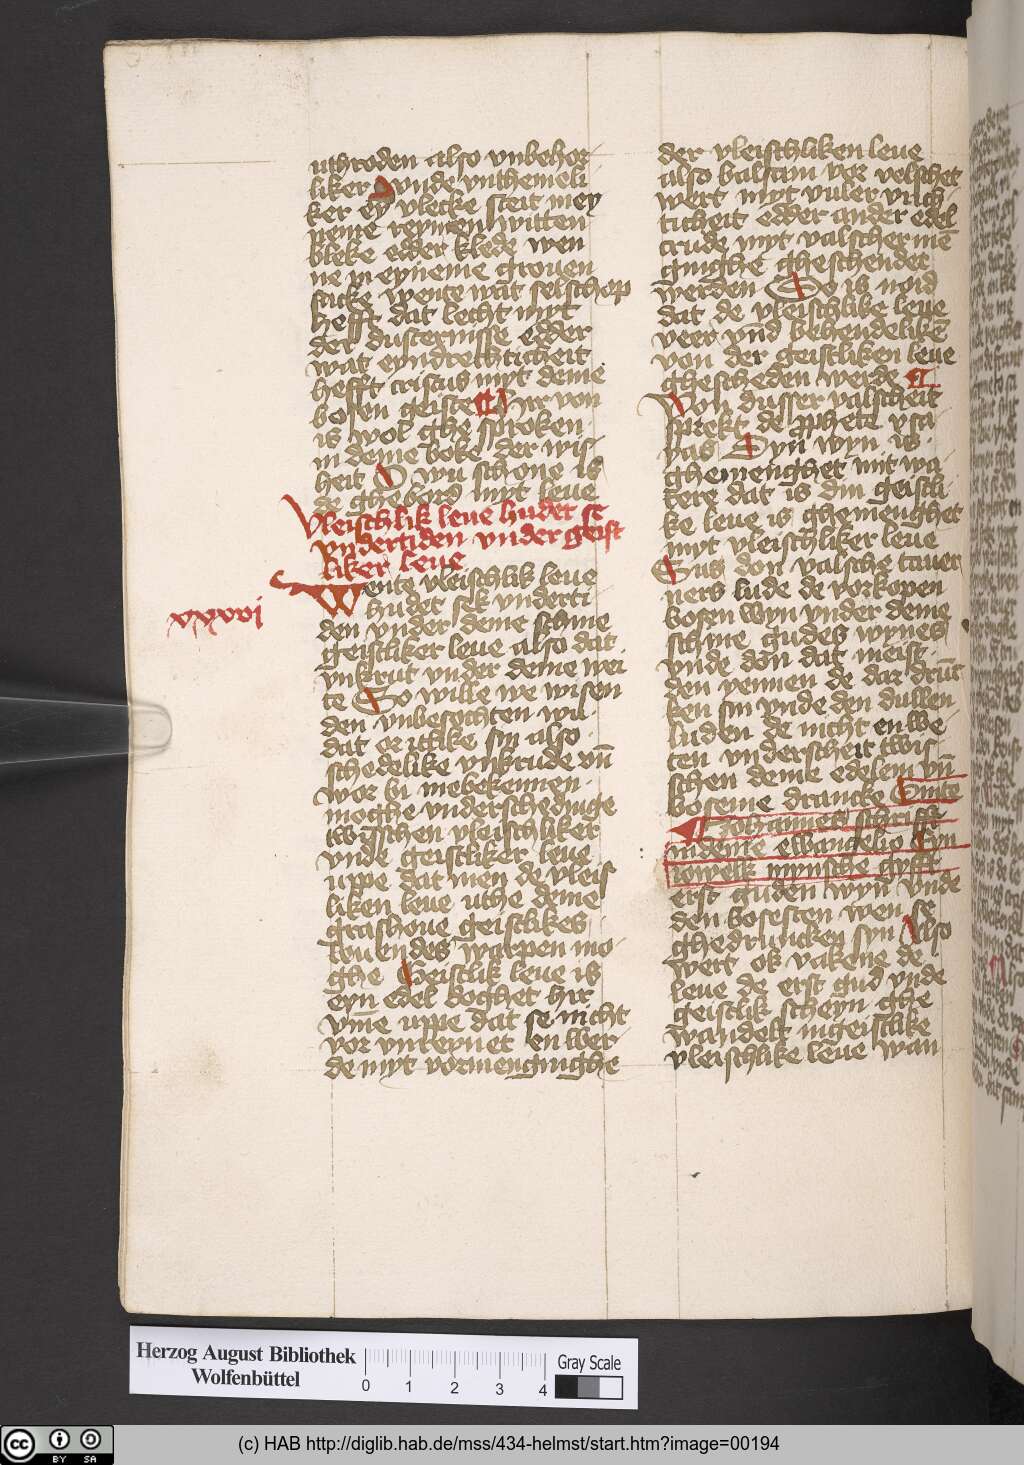 uthroden also vnbehor
liker vnde vnthemeli
ker ey vlecke steit mey
neme reymen witten
bleke edder klede wen
ne in eyneme grouen
sacke wente wat selschop
hefft dat lecht myt
der dusternisse edder
wat eyndrechticheit
hefft cristus myt deme
bosen geiste Hir von
is wol ghe sproken
in deme boke der wis
heit O wu schone is
de ghebord myt leue
Vleischlik leue hudet se
vndertiden vnder geist
liker leue
xxxvi
Wente vleischlik leue
hudet sek vnderti
den vnder deme schine
geistliker leue also dat
vnkrut vnder deme wei
te So wille we wisen
den vnbesochten wu
dat ge
schedelike vnkrude vn̄
wor bi me bekennen
moghe vnderschedinge
twisschen vleischliker
vnde geistliker leue
uppe dat men de vleis
liken leue uthe deme
grashoue geistlikes
leuendes warpen mo
ghe Geistlik leue is
eyn edel doghet hir
vm̄e uppe dat se nicht
vor vnreynet en wer
de myt vormenginghe
der vleischliken leue
also balsam vor velschet
wert myt vuler vuch
ticheit edder ander edel
crude myt valscher mē
ginghe gheschendet
werden So is noid
dat de vleischlike leue
veer vnd behendelikē
von der geistliken leue
ghescheden werde
Von dusser valscheit
sprekt de pphete ysa
yas Dyn wyn is
ghemenghet mit wa
tere dat is din geistli
ke leue is ghemenghet
myt vleischliker leue
Sus don valsche tauer
ners lude de vorkopen
bosen wyn vnder deme
schine gudes wynes
vnde don dat meist
den yennen de dar drūc
ken sin vnde den dullen
luden de nicht en we
ten vnderscheit twis
schen deme edelem vn̄
boseme drancke Sinte
Johannes schrifft
in deme ewangelio Eyn
iowelk mynsche gyfft
erst guden wyn vnde
den bosesten wen se
ghedruncken syn Also
wert ok vakene de
leue de erst gud vnde
geistlik scheyn ghe
wandelt in geistlike
vleischlike leue wan
Herzog August Bibliothek
Wolfenbüttel
0 1 2 3 4
Gray Scale
cc BY SA
(c) HAB http://diglib.hab.de/mss/434-helmst/start.htm?image=00194